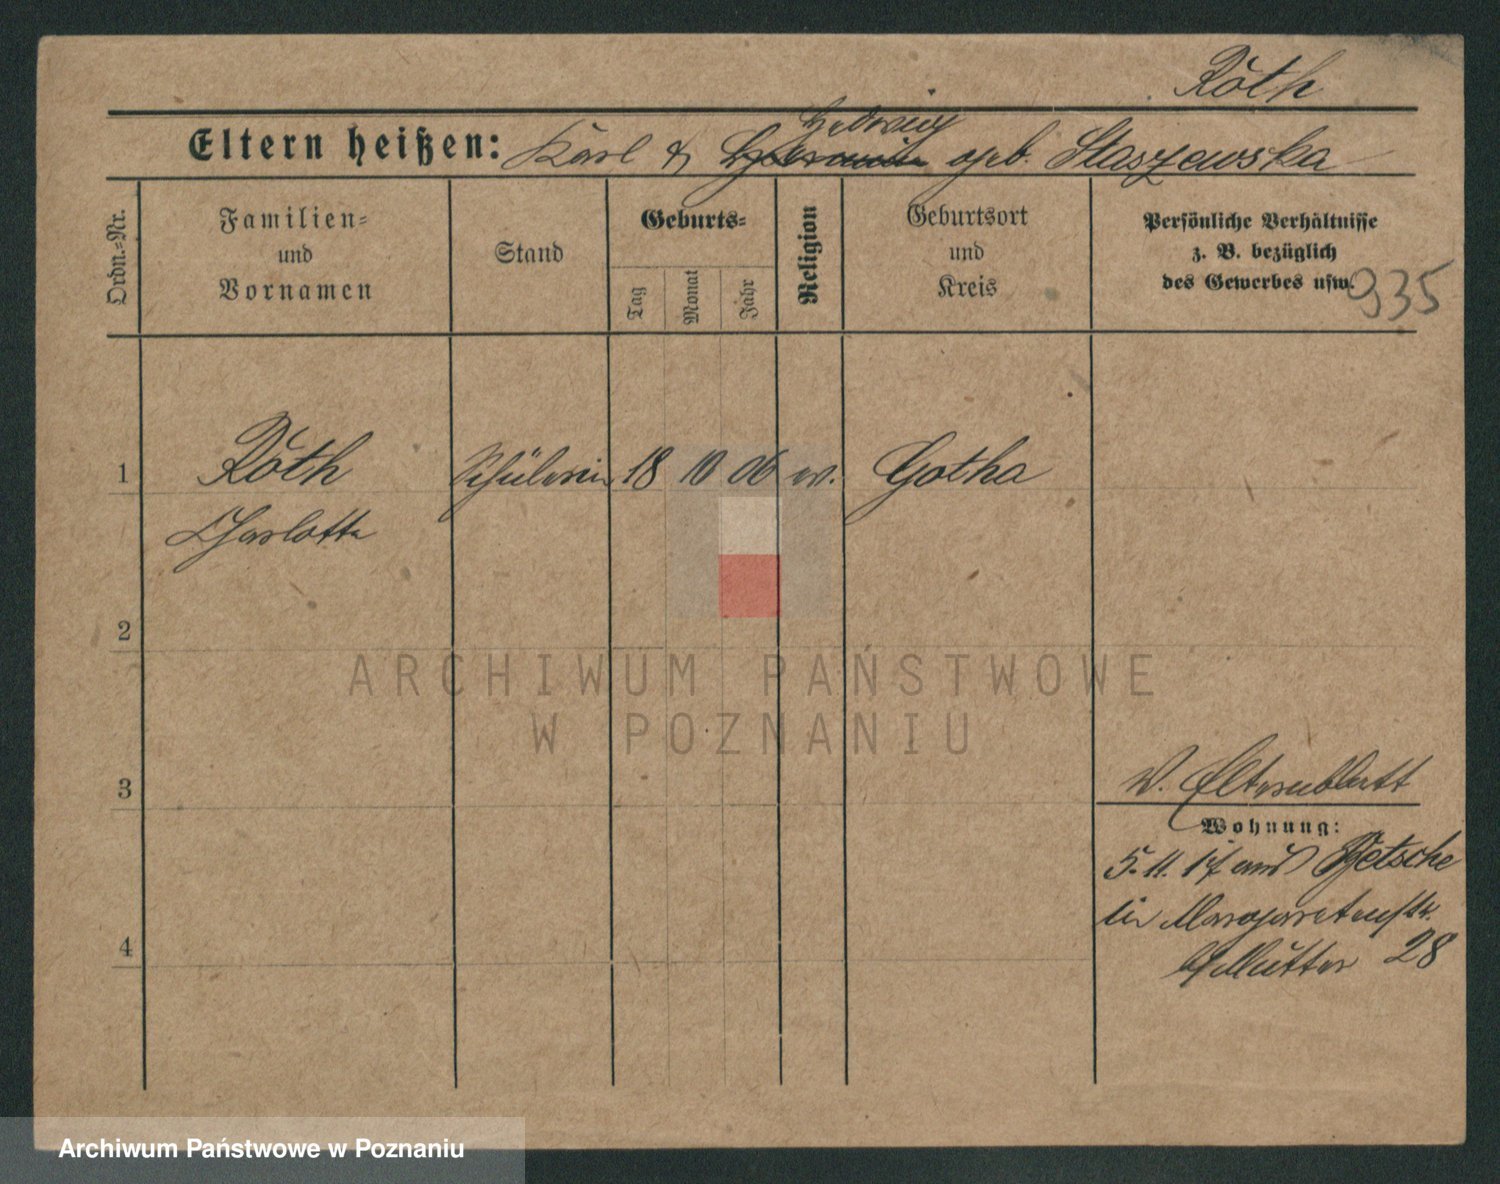 Röth
Eltern heißen: Karl & Hedwig geb. Staszewska
Ordn.=Nr.
Familien=
und
Vornamen
Stand
Geburts=
Tag
Monat
Jahr
Religion
Geburtsort
und
Kreis
Persönliche Verhältnisse
z. B. bezüglich
des Gewerbes usw.
935
1 Röth Schülerin 18 10 06 ev. Gotha
Charlotte
2
3
4
ARCHIWUM PAŃSTWOWE
W POZNANIU
Elternblatt
Wohnung:
5. 11. 17 aus
in Margaretenstr.
Mutter 28
Archiwum Państwowe w Poznaniu